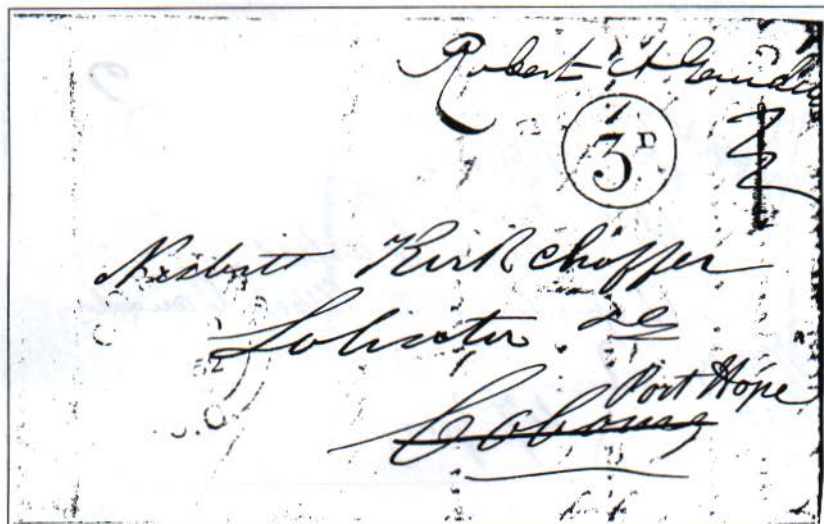 Robert A
3D
Nesbitt Kirkchoffer
Solicitor &c
Port Hope
Cobourg
52